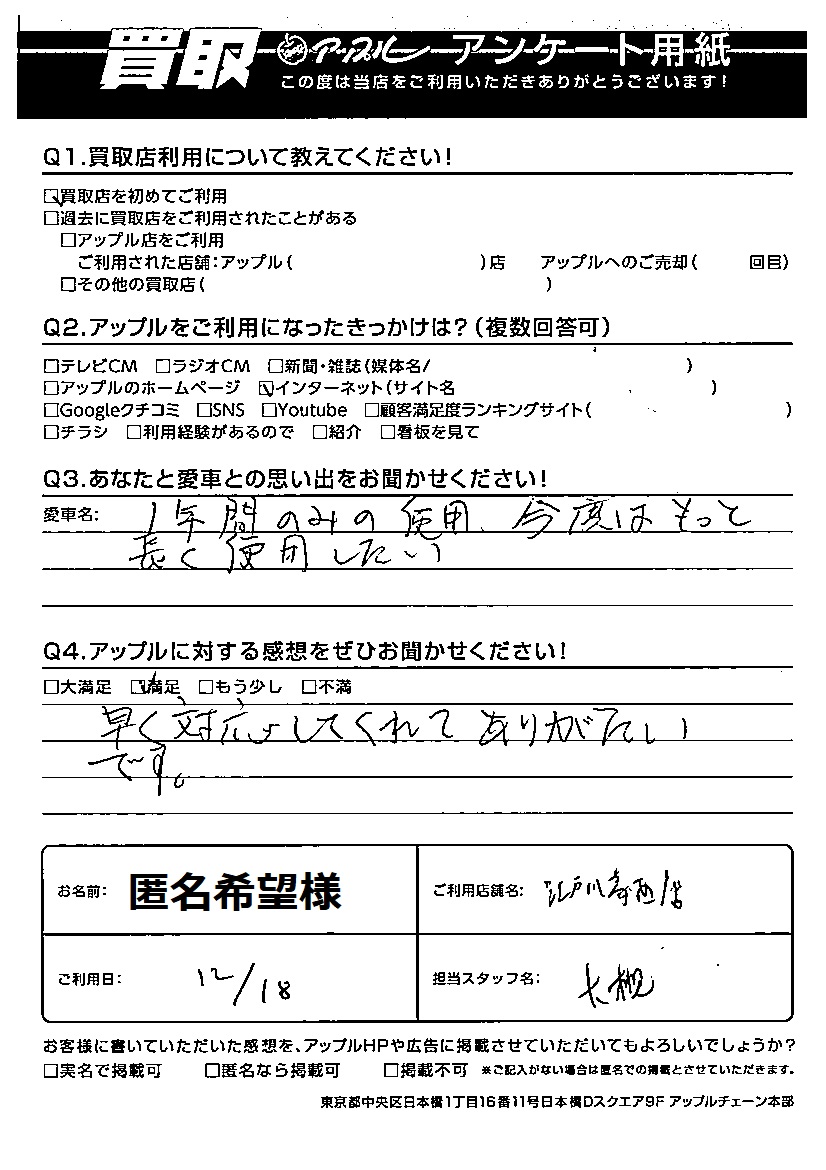 買取 アップル アンケート用紙
この度は当店をご利用いただきありがとうございます!
Q1.買取店利用について教えてください!
☑買取店を初めてご利用
□過去に買取店をご利用されたことがある
□アップル店をご利用
ご利用された店舗:アップル( )店 アップルへのご売却( 回目)
□その他の買取店( )
Q2.アップルをご利用になったきっかけは?(複数回答可)
□テレビCM □ラジオCM □新聞・雑誌(媒体名/ )
□アップルのホームページ ☑インターネット(サイト名 )
□Googleクチコミ □SNS □Youtube □顧客満足度ランキングサイト( )
□チラシ □利用経験があるので □紹介 □看板を見て
Q3.あなたと愛車との思い出をお聞かせください!
愛車名: 1年間のみの使用、今度はもっと
長く使用したい
Q4.アップルに対する感想をぜひお聞かせください!
□大満足 ☑満足 □もう少し □不満
早く対応してくれてありがたい
です。
お名前: 匿名希望様 ご利用店舗名: 江戸川葛西店
ご利用日: 12/18 担当スタッフ名: 大槻
お客様に書いていただいた感想を、アップルHPや広告に掲載させていただいてもよろしいでしょうか?
□実名で掲載可 □匿名なら掲載可 □掲載不可 ※ご記入がない場合は匿名での掲載とさせていただきます。
東京都中央区日本橋1丁目16番11号日本橋Dスクエア9F アップルチェーン本部